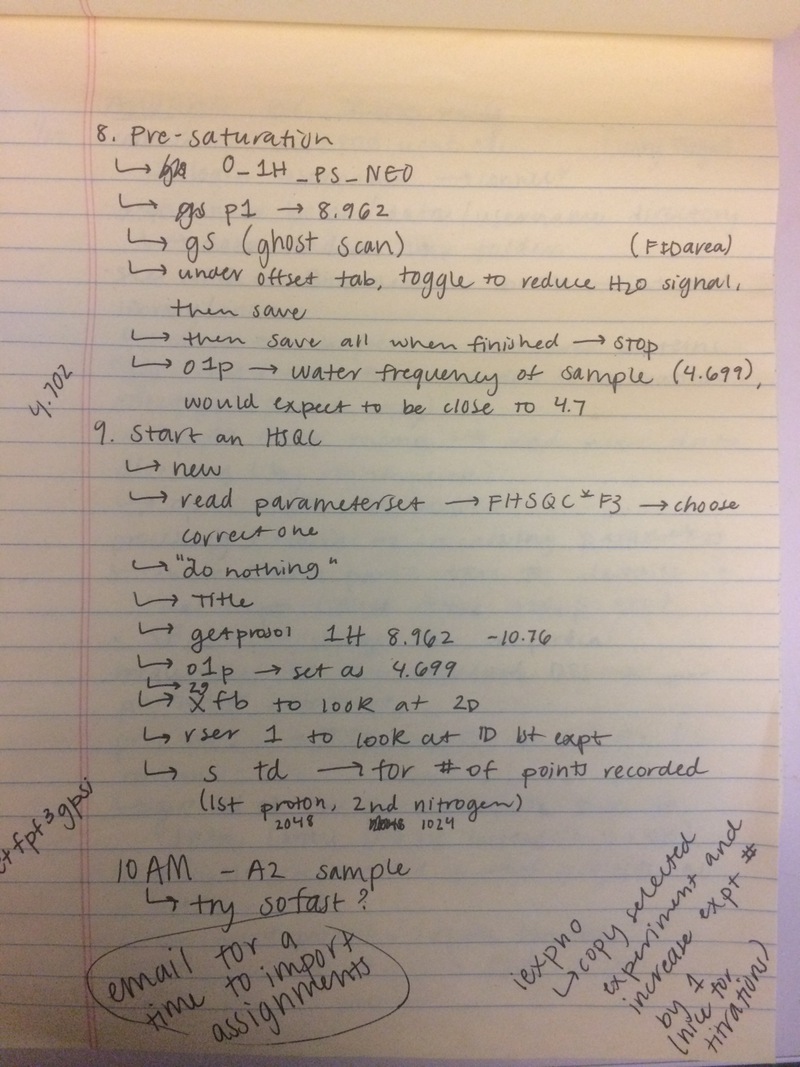 8. Pre-saturation
↳ 0_1H_PS_NEO
↳ p1 → 8.962
↳ gs (ghost scan) (FIDarea)
↳ under offset tab, toggle to reduce H2O signal,
then save
↳ then save all when finished → STOP
↳ o1p → water frequency of sample (4.699),
would expect to be close to 4.7
4.702
9. Start an HSQC
↳ new
↳ read parameterset → FHSQC*F3 → choose
correct one
↳ "do nothing"
↳ Title
↳ getprosol 1H 8.962 -10.76
↳ o1p → set as 4.699
↳ zg
↳ xfb to look at 2D
↳ rser 1 to look at 1D 1st expt
↳ s td → for # of points recorded
(1st proton, 2nd nitrogen)
2048 1024
10AM - A2 sample
↳ try sofast?
email for a
time to import
assignments
iexpno
↳ copy selected
experiment and
increase expt #
by 1
(nice for
titrations)